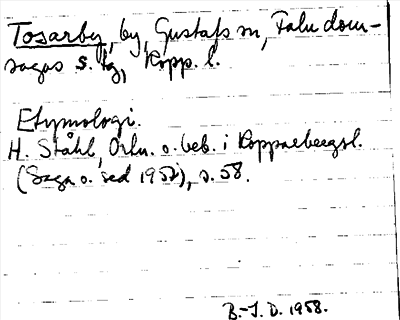 Tosarby, by, Gustafs sn, Falu dom-
sagas s. tg, Kopp. l.
Etymologi.
H. Ståhl, Ortn. o. beb. i Kopparbergsl.
(Saga o. sed 1957), s. 58.
B.-I. D. 1958.